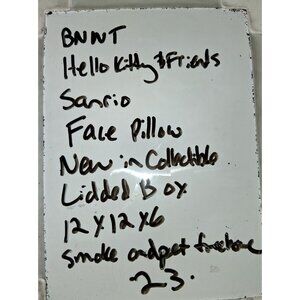 BNWT
Hello Kitty & Friends
Sanrio
Face Pillow
New in Collectible
Lidded Box
12 x 12 x 6
smoke and pet free home
23.